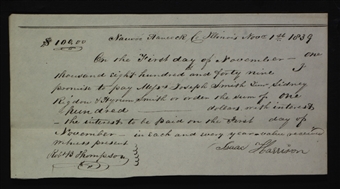 $ 100.00 Nauvoo Hancock C Illinois Novr 1st 1839
On the First day of November – one
thousand eight hundred and forty nine I
promise to pay Messrs Joseph Smith Junr Sidney
Rigdon & Hyrum Smith or order the sum of one
hundred dollars with interest
– the interests to be paid on the first day of
November – in each and every year – value received
witness present
Robt B Thompson Isaac Harrison